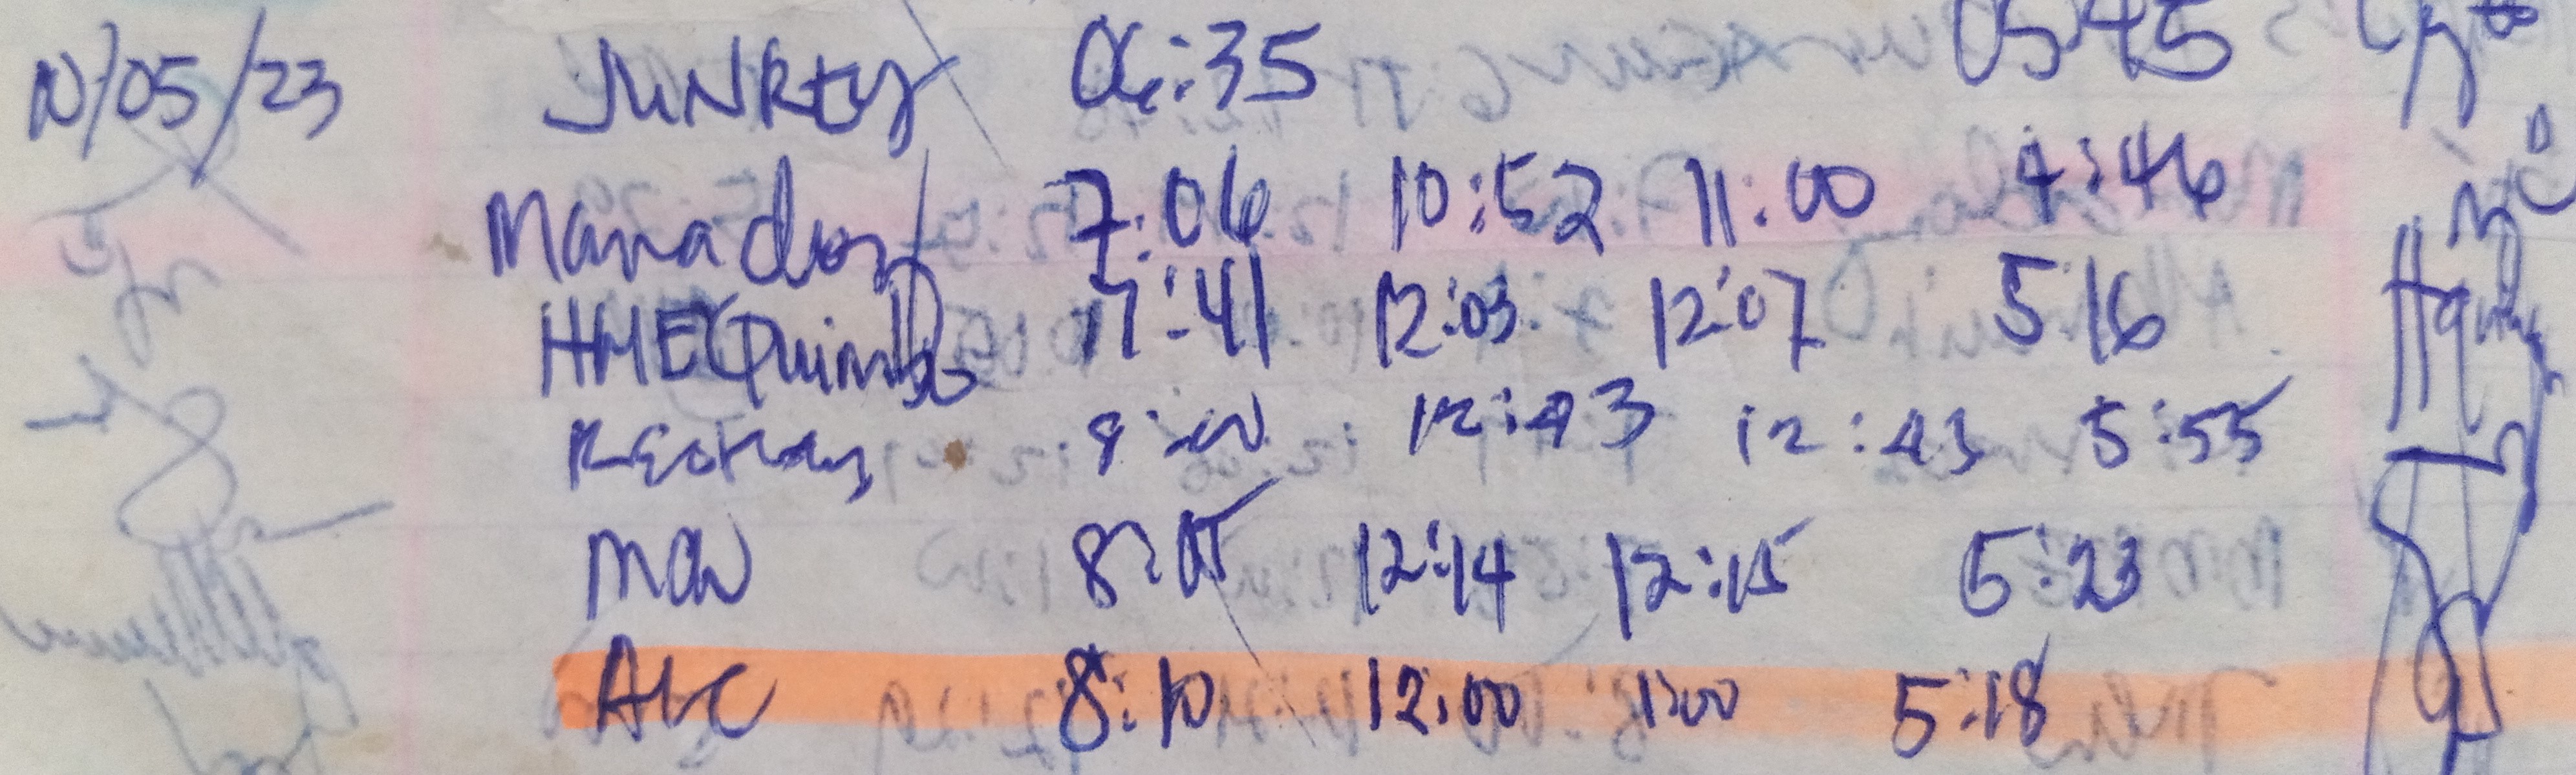 10/05/23 JUNREY 06:35 05:45
Manadon 7:06 10:52 11:00 4:46
HMEQuimbo 7:41 12:03 12:07 5:16
8:00 12:43 12:43 5:55
8:05 12:14 12:15 5:23
ALC 8:10 12:00 1:00 5:18